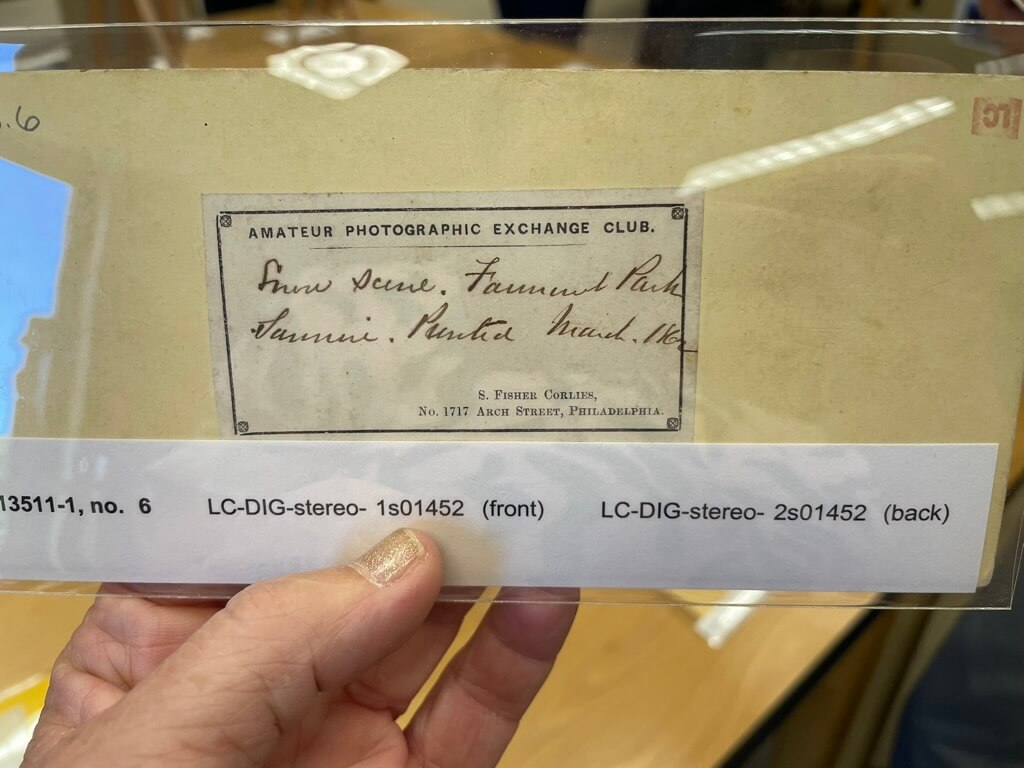 .6
LC
AMATEUR PHOTOGRAPHIC EXCHANGE CLUB.
Snow Scene. Fairmount Park
Printed March. 186
S. FISHER CORLIES,
No. 1717 ARCH STREET, PHILADELPHIA.
13511-1, no. 6 LC-DIG-stereo- 1s01452 (front) LC-DIG-stereo- 2s01452 (back)